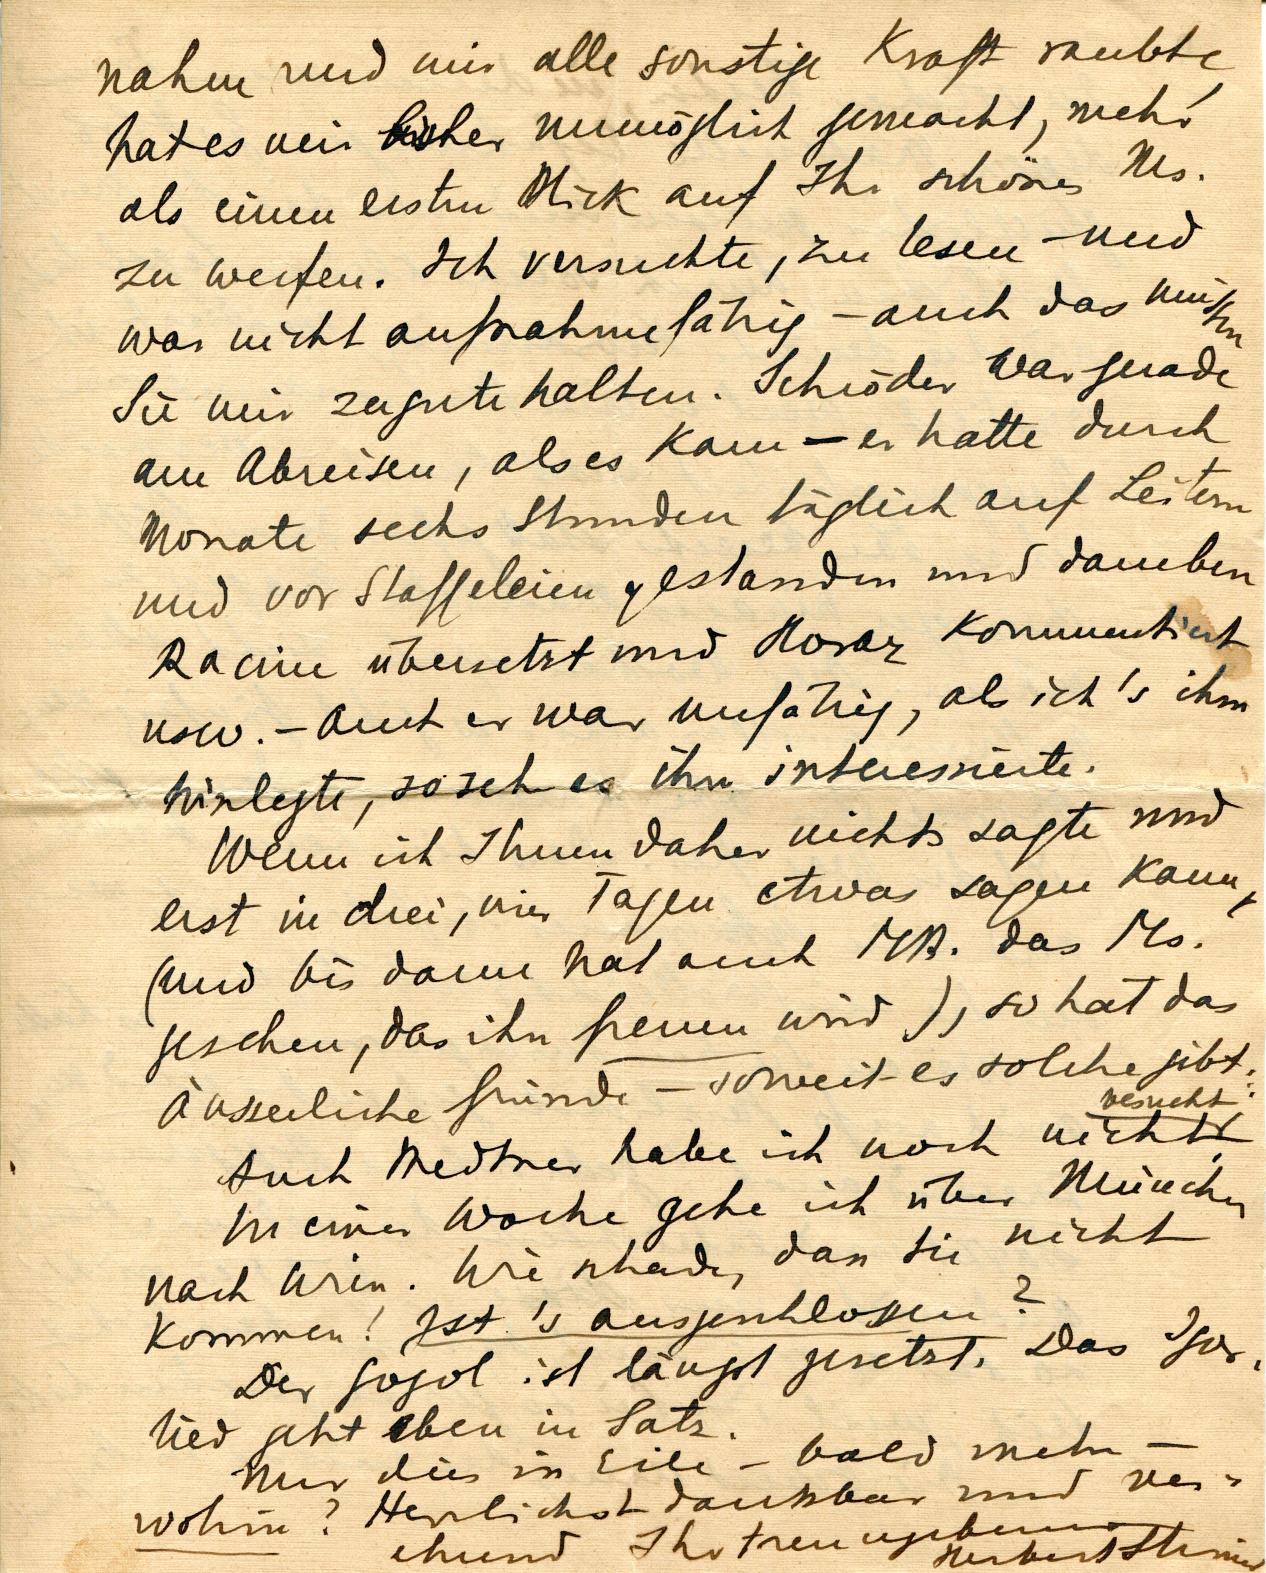 nahm und mir alle sonstige Kraft raubte
hat es mir bisher unmöglich gemacht, mehr
als einen ersten Blick auf Ihr schönes Ms.
zu werfen. Ich versuchte, zu lesen – und
war nicht aufnahmefähig – auch das müssen
Sie mir zugute halten. Schröder war gerade
am Abreisen, als es kam – er hatte durch
Monate sechs Stunden täglich auf Leitern
und vor Staffeleien gestanden und daneben
Racine übersetzt und Horaz kommentiert
usw. – Auch er war unfähig, als ich's ihm
hinlegte, so seh es ihn interessierte.
Wenn ich Ihnen daher nichts sagte und
erst in drei, vier Tagen etwas sagen kann,
(und bis dann hat auch MB. das Ms.
gesehen, das ihn freuen wird), so hat das
äusserliche Gründe – soweit es solche gibt.
Auch Medtner habe ich noch nicht besucht.
In einer Woche gehe ich über München
nach Wien. Wie schade, dass Sie nicht
kommen! Ist's ausgeschlossen?
Der Gogol ist längst gesetzt. Das Igor-
lied geht eben in Satz.
Nur dies in Eile – bald mehr –
wohin? Herzlichst dankbar und ver-
ehrend Ihr treu ergebener
Herbert Steiner